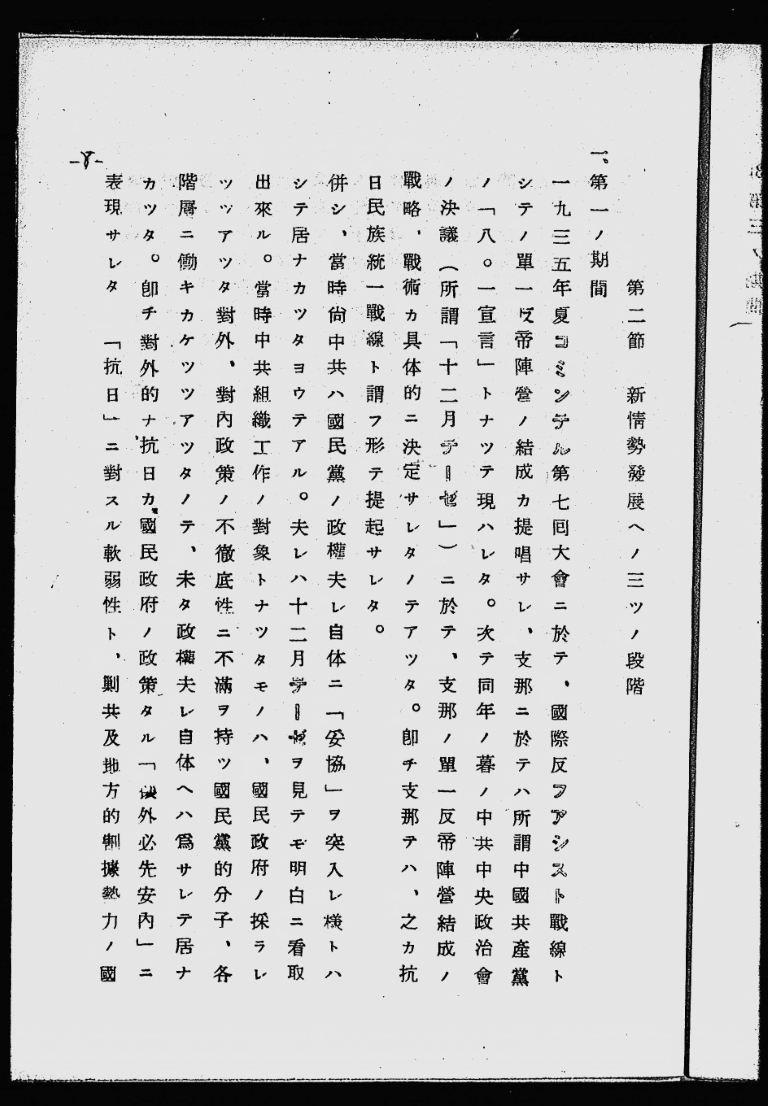 第二節　新情勢發展ヘノ三ツノ段階
一、第一ノ期間
一九三五年夏コミンテルン第七回大會ニ於テ、國際反フアシスト戰線ト
シテノ單一反帝陣營ノ結成カ提唱サレ、支那ニ於テハ所謂中國共產黨
ノ「八。一宣言」トナツテ現ハレタ。次テ同年ノ暮ノ中共中央政治會
ノ決議（所謂「十二月テーゼ」）ニ於テ、支那ノ單一反帝陣營結成ノ
戰略，戰術カ具体的ニ決定サレタノテアツタ。卽チ支那テハ、之カ抗
日民族統一戰線ト謂フ形テ提起サレタ。
併シ、當時尙中共ハ國民黨ノ政權夫レ自体ニ「妥協」ヲ突入レ樣トハ
シテ居ナカツタヨウテアル。夫レハ十二月テーゼヲ見テモ明白ニ看取
出來ル。當時中共組織工作ノ對象トナツタモノハ、國民政府ノ採ラレ
ツツアツタ對外、對內政策ノ不徹底性ニ不滿ヲ持ツ國民黨的分子、各
階層ニ働キカケツツアツタノテ、未タ政權夫レ自体ヘハ爲サレテ居ナ
カツタ。卽チ對外的ナ抗日カ國民政府ノ政策タル「外必先安內」ニ
表現サレタ　「抗日」ニ對スル軟弱性ト、剿共及地方的割據勢力ノ國